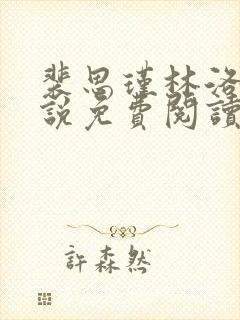 裴思瑾林洛
說免費閱讀
許森然